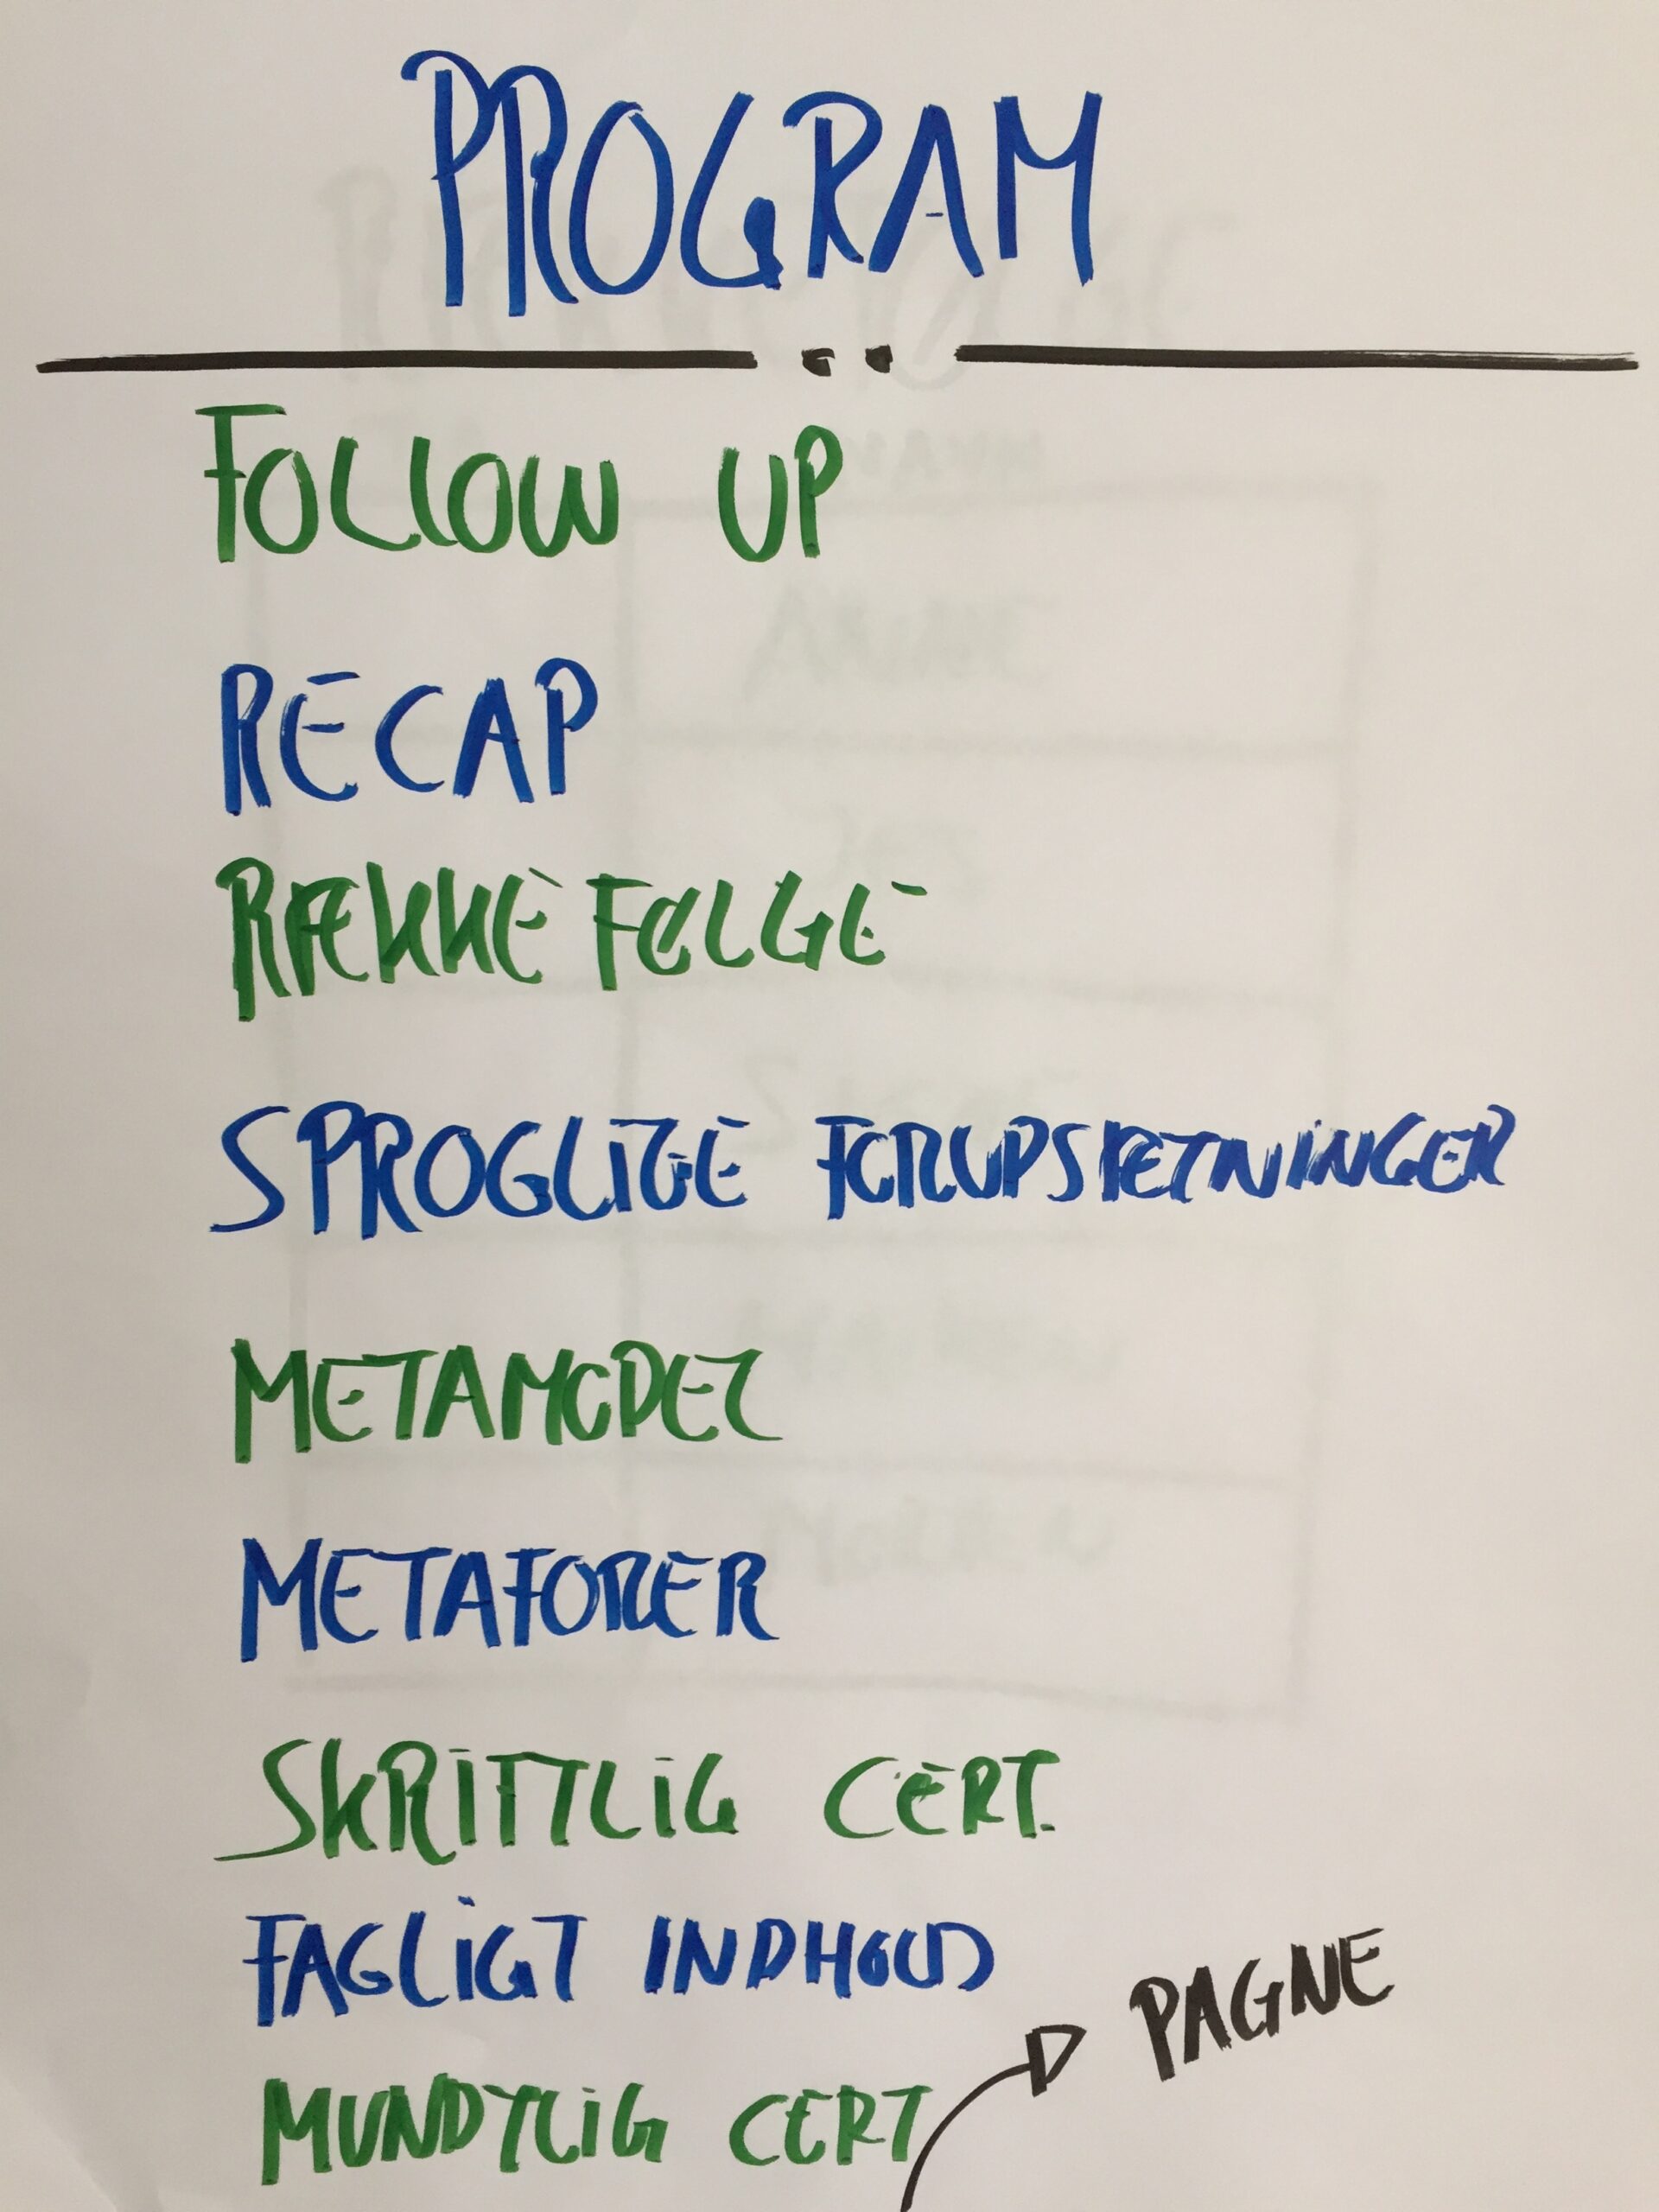 PROGRAM
FOLLOW UP
RECAP
RÆKKEFØLGE
SPROGLIGE FORUDSÆTNINGER
METAMODEL
METAFORER
SKRIFTLIG CERT.
FAGLIGT INDHOLD
PAGNE
MUNDTLIG CERT